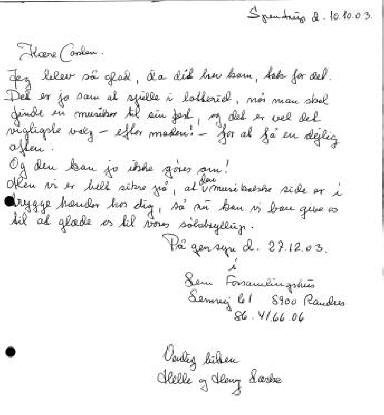 Spentrup d. 10.10.03.
Kære Carsten.
Jeg blev så glad, da dit brev kom, tak for det.
Det er jo som at spille i lotteriet, når man skal
finde en musiker til sin fest, og det er vel det
vigtigste valg – efter maden! – for at få en dejlig
aften.
Og den kan jo ikke gøres om!
Men vi er helt sikre på, at den musikalske side er i
trygge hænder hos dig, så nu kan vi bare give os
til at glæde os til vores sølvbryllup.
På gensyn d. 27.12.03.
i
Lem Forsamlingshus
Lemvej 61 8900 Randers
86.41 66 06
Venlig hilsen
Helle og Henry